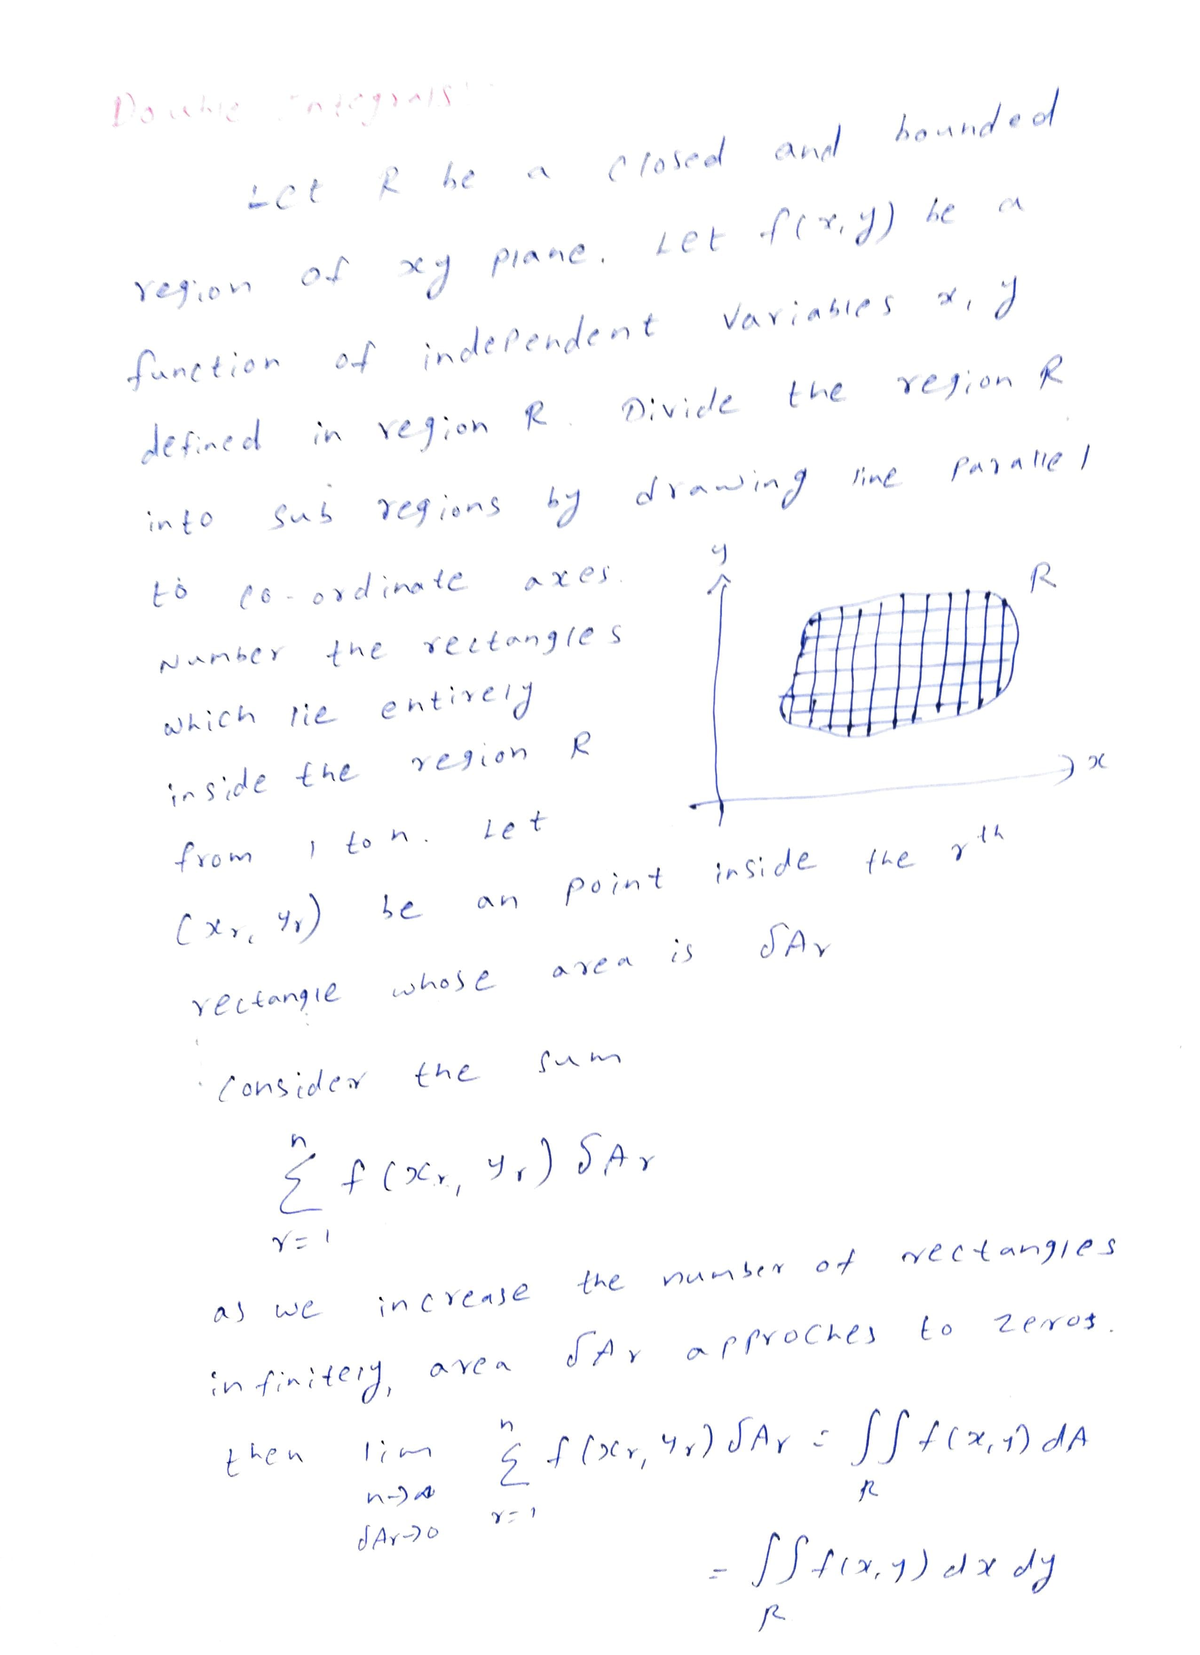 Double Integrals:-
Let R be a closed and bounded
region of xy plane. Let f(x,y) be a
function of independent variables x, y
defined in region R. Divide the region R
into sub regions by drawing line parallel
to co-ordinate axes.
Number the rectangles
which lie entirely
inside the region R
from 1 to n. Let
(xᵣ, yᵣ) be an point inside the rᵗʰ
rectangle whose area is δAᵣ
y
R
x
Consider the sum
n
Σ f(xᵣ, yᵣ) δAᵣ
r=1
as we increase the number of rectangles
infinitely, area δAᵣ approches to zeros.
then lim n→∞ δAᵣ→0 n Σ r=1 f(xᵣ, yᵣ) δAᵣ = ∬ R f(x,y) dA
= ∬ R f(x,y) dx dy